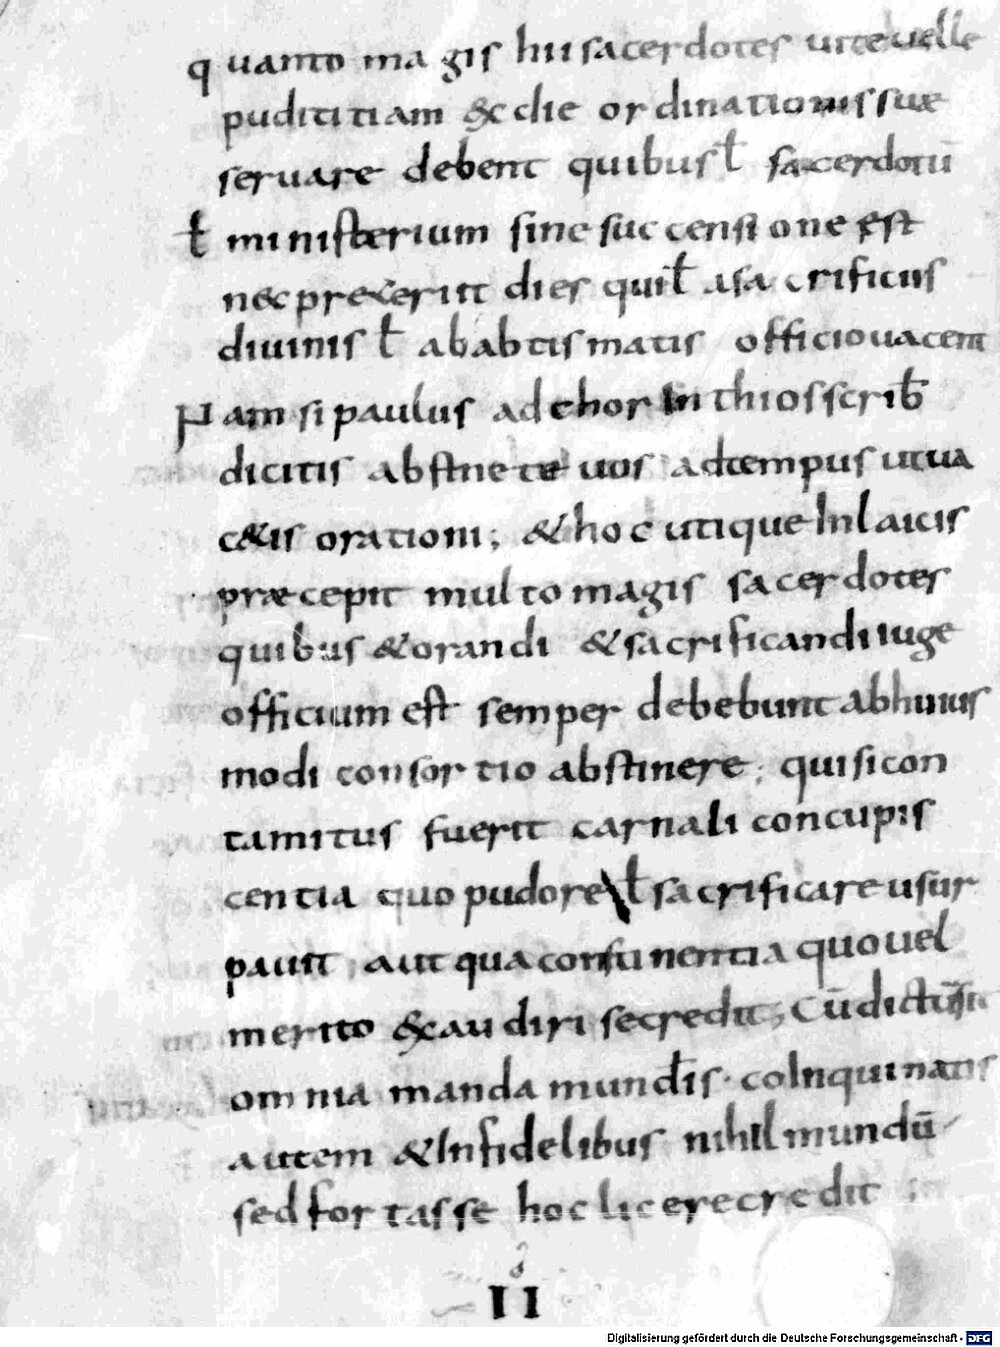 quanto magis hii sacerdotes utte uelle
pudititiam & die ordinationis suae
seruare debent quibus ł sacerdotū
ł ministerium sine successione est
nec preterit dies qui ł a sacrificiis
diuinis ł a babtismatis officio uacent
Nam si paulus ad chorinthios scrib̄
dicitis abstinete uos ad tempus ut ua
c&is orationi; & hoc utique In laicis
præcepit multo magis sacerdotes
quibus & orandi & sacrificandi iuge
officium est semper debebunt ab huius
modi consortio abstinere; qui si con
tamitus fuerit carnali concupis
centia quo pudore ł sacrificare usur
pauit; aut qua consinentia quo uel
merito &audiri se credit; Cū dictū sit
omnia manda mundis· coInquinatis
autem & Infidelibus nihil mundū
sed fortasse hoc licere credit
II
Digitalisierung gefördert durch die Deutsche Forschungsgemeinschaft - DFG